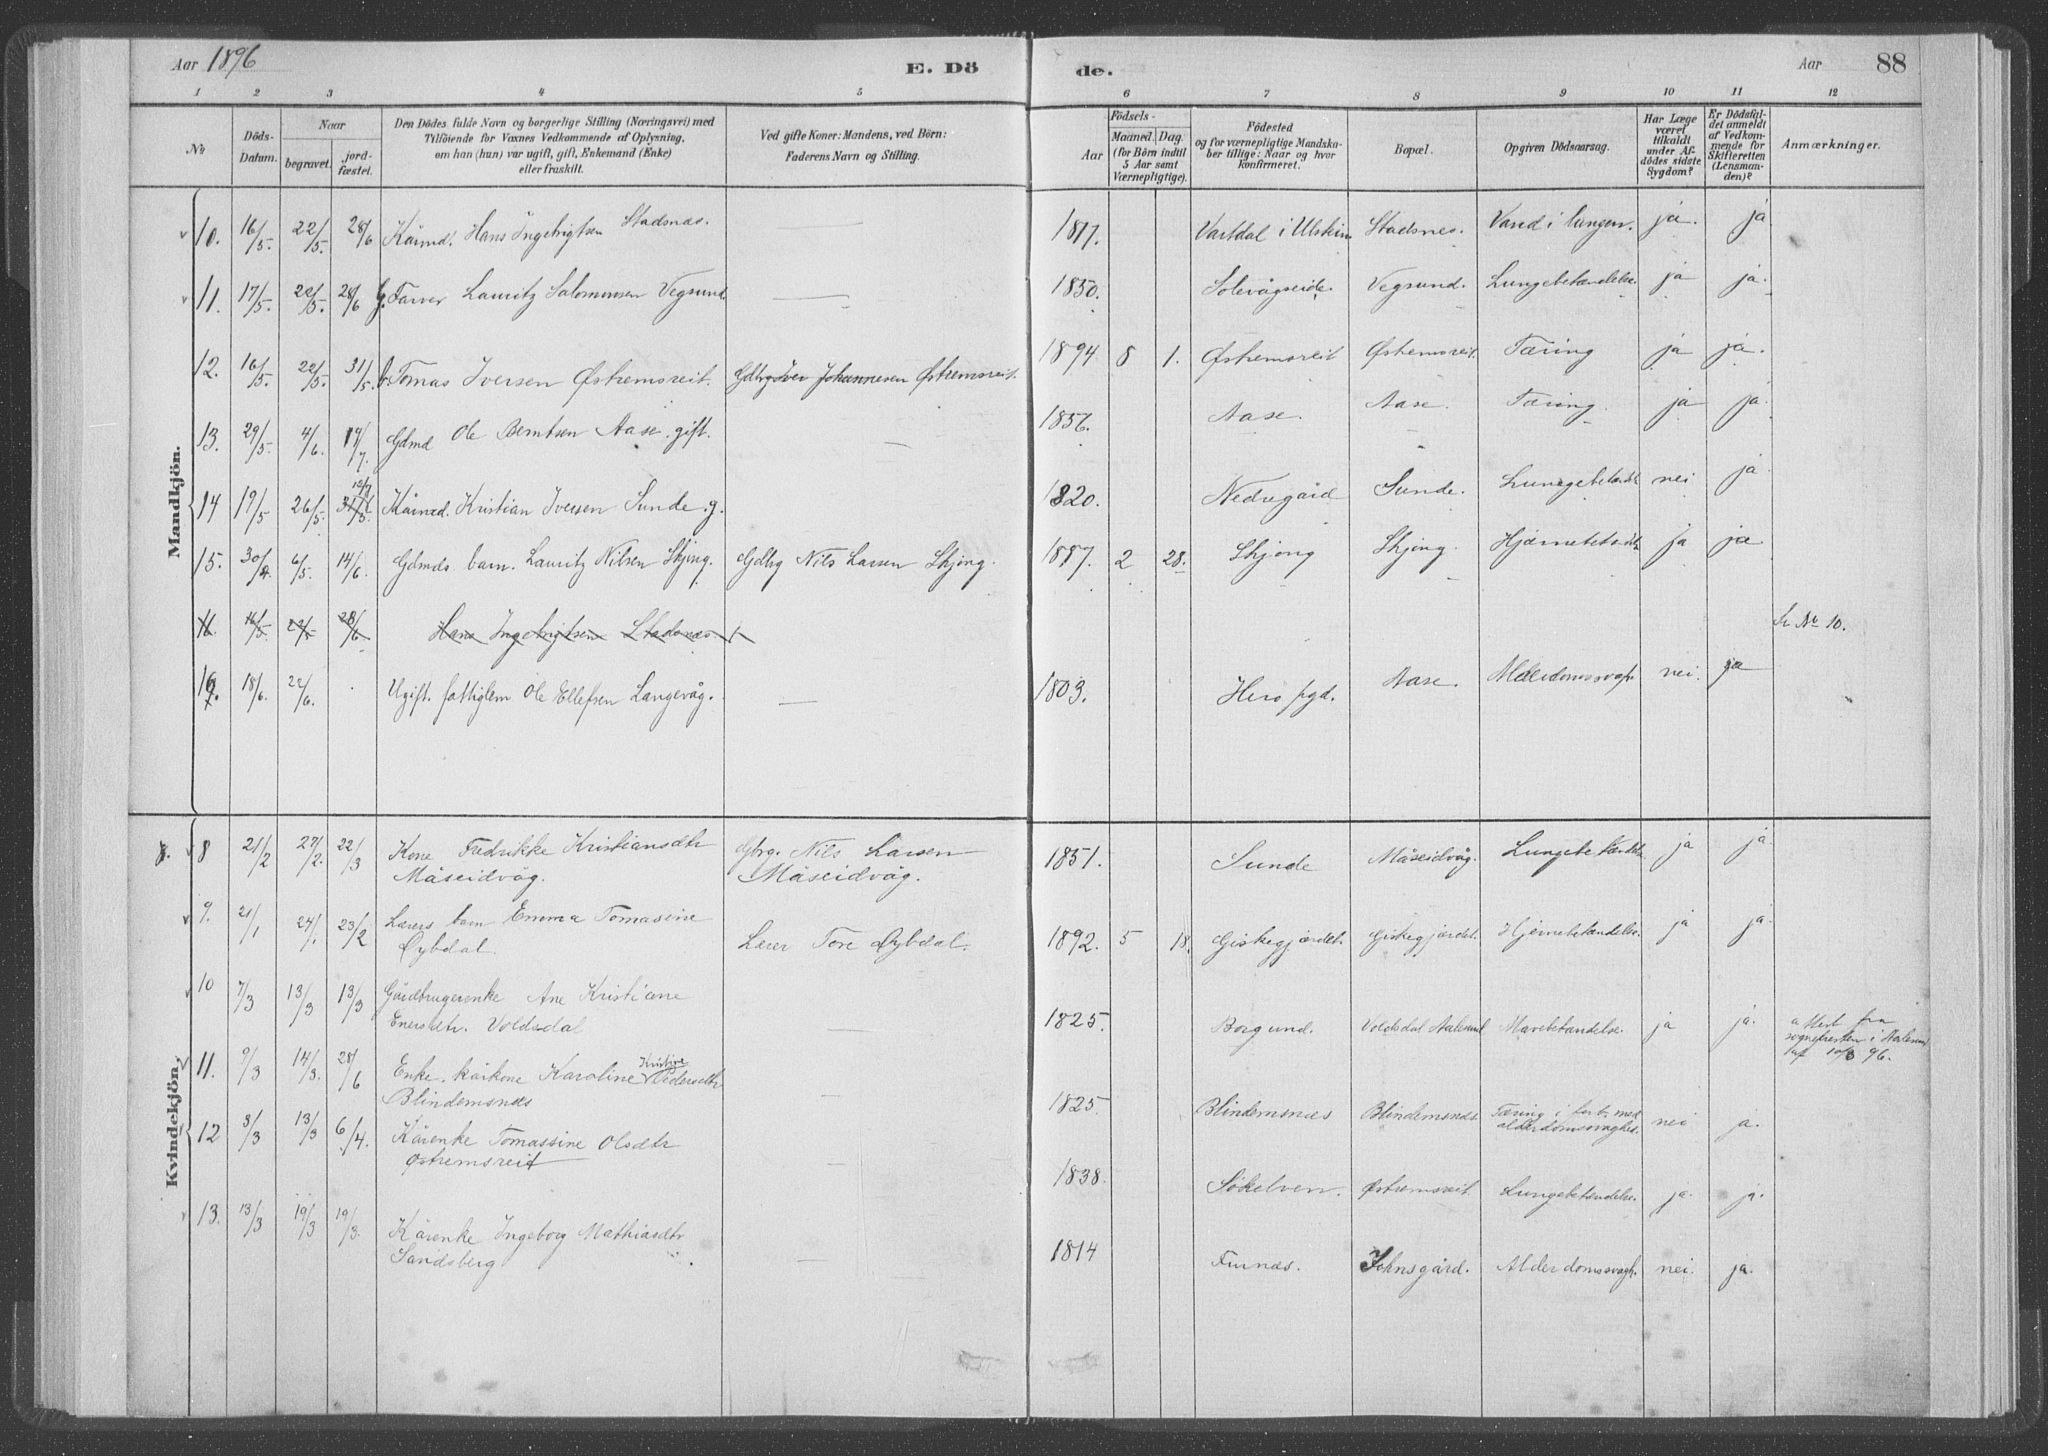 Aar 1896
E. Dö
de.
Aar
88
1 2 3 4 5 6 7 8 9 10 11 12
No
Döds-
Datum.
Naar
begravet.
jord-
fæstet.
Den Dödes fulde Navn og borgerlige Stilling (Næringsvei) med
Tilföiende for Voxnes Vedkommende af Oplysning,
om han (hun) var ugift, gift, Enkemand (Enke)
eller fraskilt.
Ved gifte Koner: Mandens, ved Börn:
Faderens Navn og Stilling.
Aar
Födsels-
Maaned. Dag.
(for Börn indtil
5 Aar samt
Værnepligtige).
Födested
og for værnepligtige Mandska-
ber tillige: Naar og hvor
konfirmeret.
Bopæl.
Opgiven Dödsaarsag.
Har Læge
været
tilkaldt
under Af-
dödes sidste
Sygdom?
Er Dödsfal-
det anmeldt
af Vedkom-
mende for
Skifteretten
(Lensman-
den)?
Anmærkninger.
Mandkjön.
10. 16/5. 22/5. 28/6 Kårmd. Hans Ingebrigtsen Stadsnæs. 1817. Vartdal i Ulstein Stadsnes. Vand i lungen. ja. ja
11. 17/5. 22/5. 28/6 g. Farver Lauritz Salomonsen Vegsund 1850. Solevågseide. Vegsund. Lungebetændelse. ja ja.
12. 16/5. 22/5. 31/5. Tomas Iversen Østremsreit. Gdbrg Iver Johannesen Østremsreit. 1894 8 1. Østremsreit Østremsreit. Tæring ja ja.
13. 29/5. 4/6. 14/7. Gdmd Ole Berntsen Aase. gift. 1856. Aase. Aase. Tæring. ja ja.
14 19/5 26/5. 31/5. Kårmd. Kristian Iversen Sunde. g. 1820. Nedregård Sunde. Lungebetændt. nei ja
15. 30/4. 6/5. 14/6. Gdmds barn. Lauritz Nilsen Skjong. Gdbrg Nils Larsen Skjong. 1887. 2 28. Skjong Skjong. Hjernebetændt. ja ja
16. 16/5. 22/5 28/6 Hans Ingebrigtsen Stadsnæs. Se No 10.
16. 18/6. 22/6. Ugift. fattiglem Ole Ellefsen Langevåg. 1803. Herø pgd. Aase. Alderdomssvagh. nei. ja
Kvindekjön.
8 21/2 27/2. 22/3 Kone Fredrikke Kristiansdtr Gbrg. Nils Larsen 1851. Sunde Måseidvåg. Lungebetændelse ja ja
Måseidvåg. Måseidvåg.
9. 21/1 24/1. 23/2 Lærers barn Emma Tomasine
Øybdal. Lærer Tore Øybdal. 1892. 5 18. Giskegjærdet. Giskegjærdet. Hjernebetændelse. ja ja.
10 7/3 13/3 13/3 Gårdbrugerenke Ane Kristiane
Enersdtr. Voldsdal 1825. Borgund. Voldsdal Aalesund Mavebetændelse. ja ja. attest fra
sognepresten i Aalesund
10/3 96.
11. 9/3 14/3. 28/6 Enke. kårkone Karoline Kristine Pedersdtr
Blindemsnæs 1825. Blindemsnæs Blindemsnæs. Tæring i forb. med
alderdomssvaghed. nei ja.
12 8/3 13/3 6/4. Kårenke Tomassine Olsdtr
Østremsreit 1838. Søkelven. Østremsreit. Lungebetændelse. ja. ja.
13. 13/3 19/3 19/3. Kårenke Ingeborg Mathiasdtr
Sandsberg 1814 Furnæs. Johnsgård. Alderdomssvagh. nei. ja.